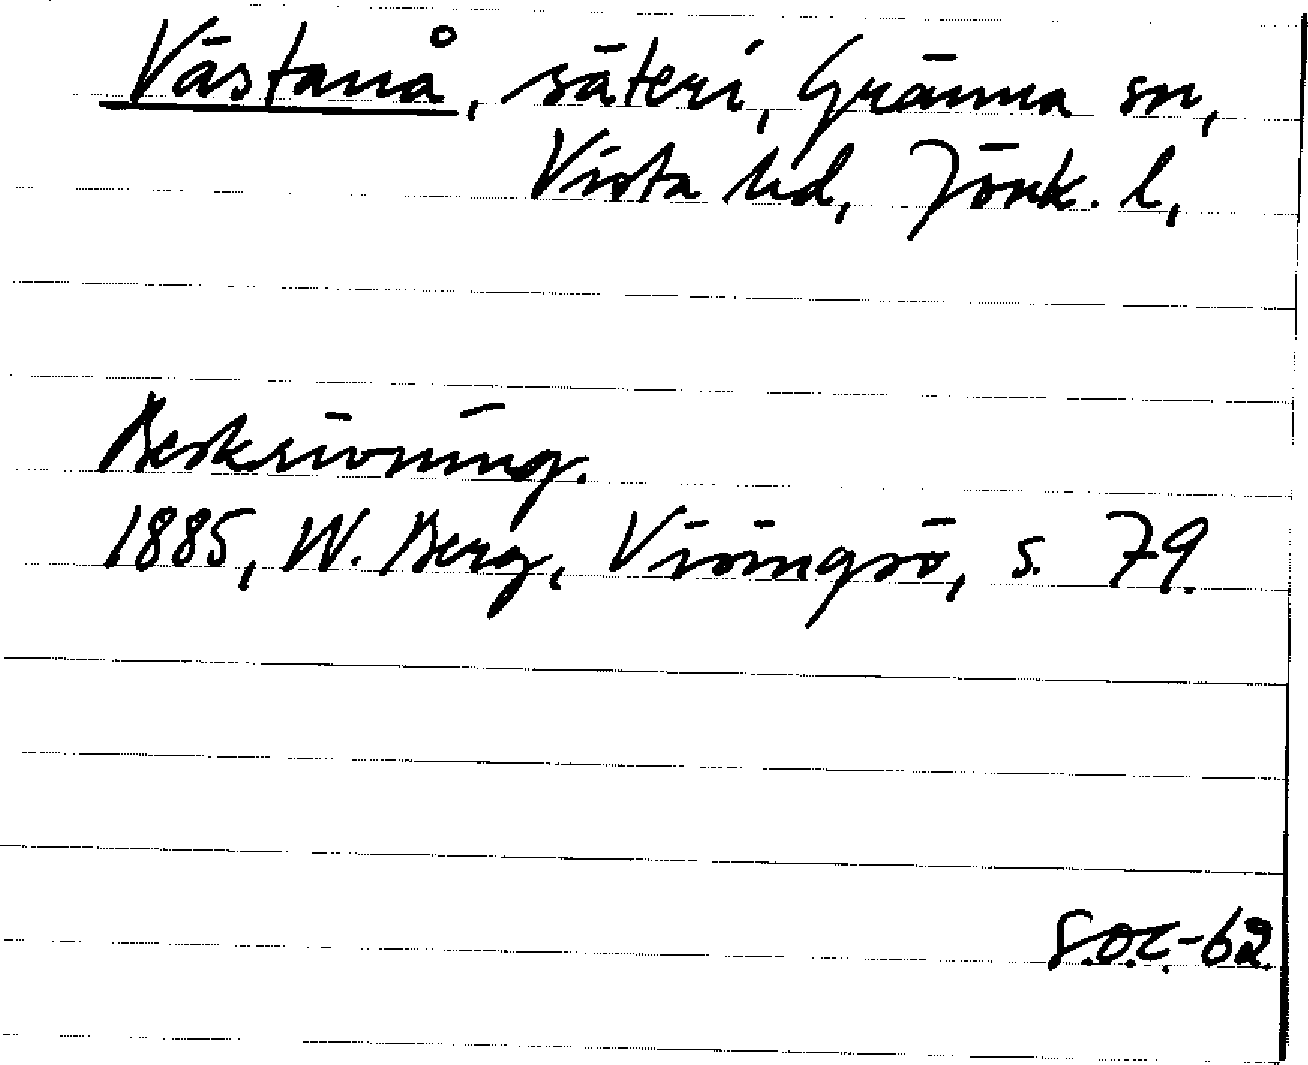 Västanå, säteri, Gränna sn,
Vista hd, Jönk. l,
Beskrivning.
1885, W. Berg, Visingsö, s. 79.
S.O.C.-62